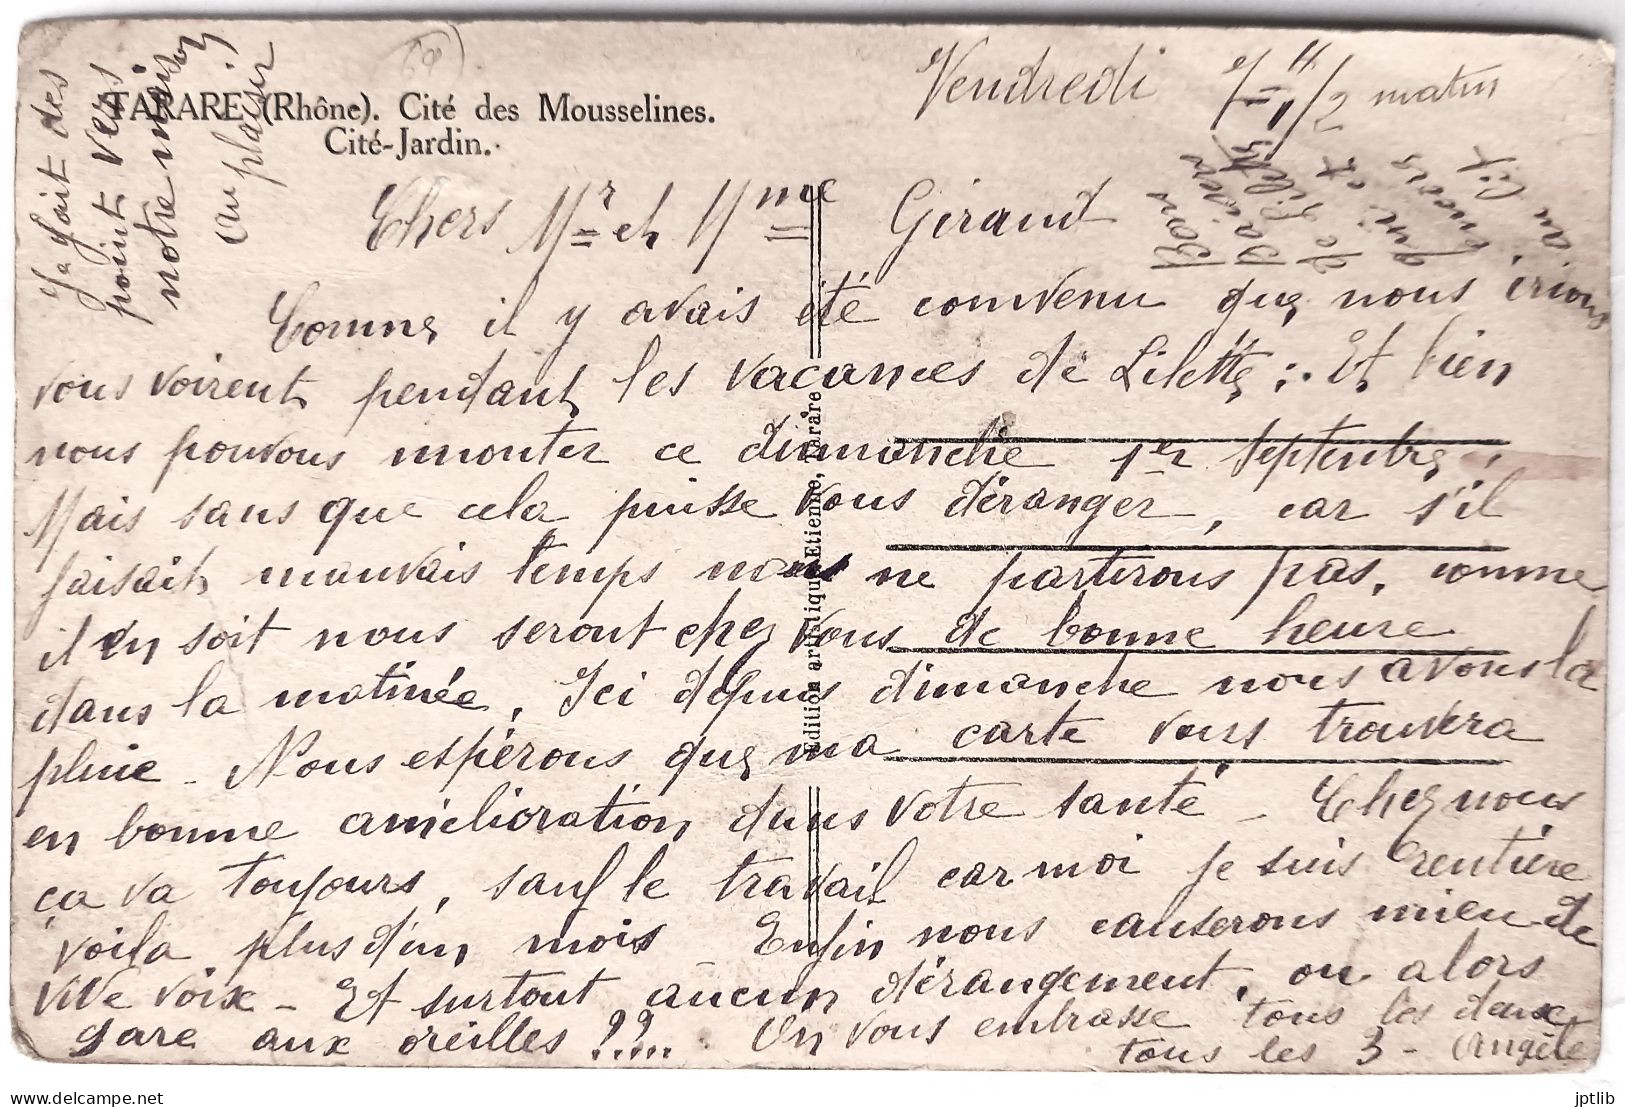 TARARE (Rhône). Cité des Mousselines.
Cité-Jardin.
Vendredi 7 H 1/2 matin
Chers Mr et Mme Giraud
Comme il y avais été convenu que nous irions
vous voirent pendant les vacances de Lilette ; Et bien
nous pouvons monter ce dimanche 1er Septembre,
Mais sans que cela puisse vous déranger, car s'il
faisait mauvais temps nous ne partirons pas, comme
il en soit nous seront chez vous de bonne heure
dans la matinée. Ici depuis dimanche nous avons la
pluie - Nous espérons que ma carte vous trouvera
en bonne amélioration dans votre santé - Chez nous
ça va toujours, sauf le travail car moi je suis rentière
voila plus d'un mois - Enfin nous causerons mieu de
vive voix - Et surtout aucun dérangement, ou alors
gare aux oreilles !??.... On vous embrasse tous les deux
tous les 3 - Angèle
Bons
Baisers
de Lily
qui et
encore
au lit
Y a fait des
point vers
notre maison
au plaisir
Edition artistique Etienne, Tarare
delcampe.net
jptlib